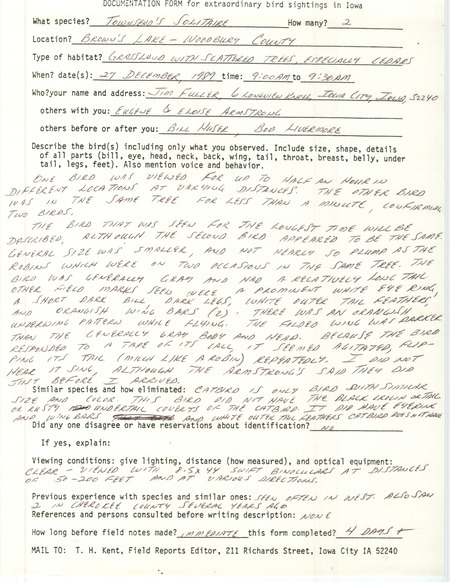 DOCUMENTATION FORM for extraordinary bird sightings in Iowa
What species? TOWNSEND'S SOLITAIRE How many? 2
Location? BROWN'S LAKE - WOODBURY COUNTY
Type of habitat? GRASSLAND WITH SCATTERED TREES, ESPECIALLY CEDARS
When? date(s): 27 DECEMBER, 1989 time: 9:00AM to 9:30AM
Who? your name and address: JIM FULLER, 6 LONGVIEW KNOLL, IOWA CITY, IOWA, 52240
others with you: EUGENE & ELOISE ARMSTRONG
others before or after you: BILL HUSER, BOB LIVERMORE
Describe the bird(s) including only what you observed. Include size, shape, details
of all parts (bill, eye, head, neck, back, wing, tail, throat, breast, belly, under
tail, legs, feet). Also mention voice and behavior.
ONE BIRD WAS VIEWED FOR UP TO HALF AN HOUR IN
DIFFERENT LOCATIONS AT VARYING DISTANCES. THE OTHER BIRD
WAS IN THE SAME TREE FOR LESS THAN A MINUTE, CONFIRMING
TWO BIRDS.
THE BIRD THAT WAS SEEN FOR THE LONGEST TIME WILL BE
DESCRIBED, ALTHOUGH THE SECOND BIRD APPEARED TO BE THE SAME.
GENERAL SIZE WAS SMALLER, AND NOT NEARLY SO PLUMP AS THE
ROBINS WHICH WERE ON TWO OCCASIONS IN THE SAME TREE. THE
BIRD WAS GENERALLY GRAY AND HAD A RELATIVELY LONG TAIL
OTHER FIELD MARKS SEEN WERE A PROMINENT WHITE EYE RING,
A SHORT DARK BILL, DARK LEGS, WHITE OUTER TAIL FEATHERS,
AND ORANGISH WING BARS (2). THERE WAS AN ORANGISH
UNDERWING PATTERN WHILE FLYING. THE FOLDED WING WAS DARKER
THAN THE GENERALLY GRAY BODY AND HEAD. BECAUSE THE BIRD
RESPONDED TO A TAPE OF ITS CALL, IT SEEMED AGITATED, FLIP-
PING ITS TAIL (MUCH LIKE A ROBIN) REPEATEDLY. I DID NOT
HEAR IT SING, ALTHOUGH THE ARMSTRONG'S SAID THEY DID
JUST BEFORE I ARRIVED.
Similar species and how eliminated: CATBIRD IS ONLY BIRD WITH SIMILAR
SIZE AND COLOR. THIS BIRD DID NOT HAVE THE BLACK CROWN OR TAIL
OR RUSTY UNDERTAIL COVERTS OF THE CATBIRD IT DID HAVE EYERING
AND WING BARS AND WHITE OUTER TAIL FEATHERS CATBIRD DOES NOT HAVE
Did any one disagree or have reservations about identification? NO
If yes, explain:
Viewing conditions: give lighting, distance (how measured), and optical equipment:
CLEAR - VIEWED WITH 8.5X44 SWIFT BINOCULARS AT DISTANCES
OF 50-200 FEET AND AT VARIOUS DIRECTIONS.
Previous experience with species and similar ones: SEEN OFTEN IN WEST. ALSO SAW
2 IN CHEROKEE COUNTY SEVERAL YEARS AGO
References and persons consulted before writing description: NONE
How long before field notes made? IMMEDIATE this form completed? 4 DAYS +
MAIL TO: T. H. Kent, Field Reports Editor, 211 Richards Street, Iowa City IA 52240